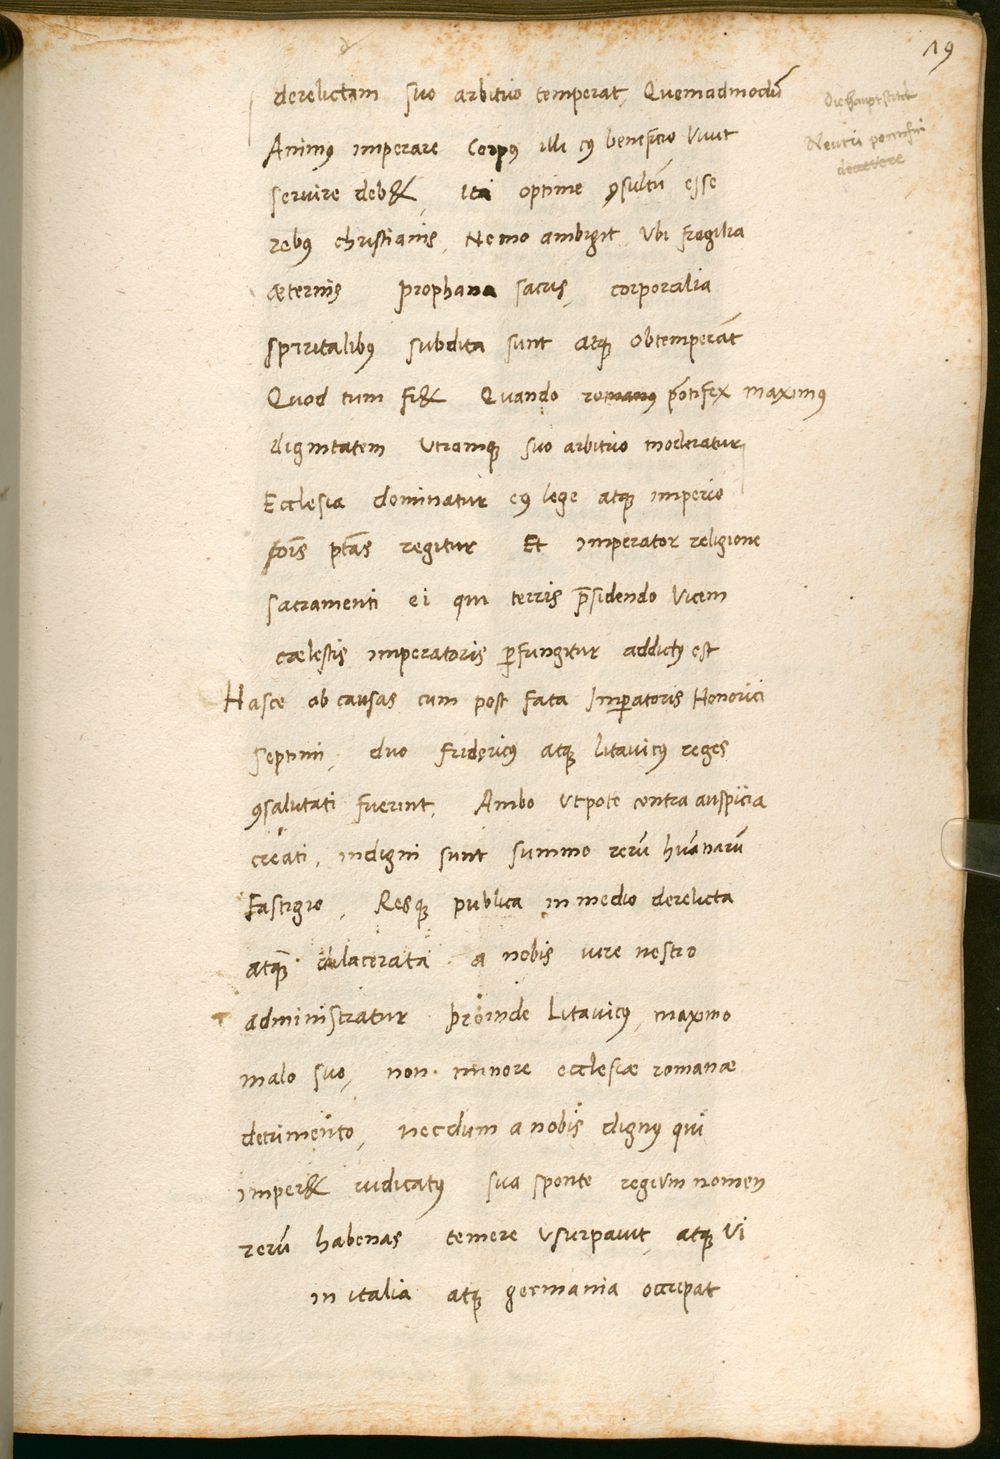 19
derelictam suo arbitrio temperat, Quemadmodū
Animꝰ imperare Corpꝰ illi cꝰ beneficio Viuit
seruire deb&, ita optime ꝯsultū esse
rebꝰ christianis, Nemo ambigit, Vbi fragilia
æternis prophana sacris, corporalia
spiritalibꝰ subdita sunt atqꝫ obtemperāt
Quod tum fi& Quando romanꝰ pōtifex maximꝰ
dignitatem Vtramqꝫ suo arbitrio moderatur,
Ecclesia dominatur eꝰ lege atqꝫ imperio
ptās regitur Et imperator religione
sacramenti ei qui terris p̄sidendo Vicem
cælestis imperatoris ꝑfungitur addictꝰ est
Hasce ob causas cum post fata Imꝑatoris Honorici
septimi, duo fridericꝰ atqꝫ litauicꝰ reges
ꝯsalutati fuerint, Ambo Vtpote contra auspicia
creati, indigni sunt summo rerū hūanarū
fastigio, Resqꝫ publica in medio derelicta
atqꝫ dilacerata a nobis iure nostro
administratur proinde Litauicꝰ, maximo
malo suo, non minore ecclesiæ romanæ
detrimento, necdum a nobis dignꝰ qui
imper& iudicatꝰ sua sponte regium nomen
rerū habenas temere Vsurpauit, atqꝫ Vi
in italia atqꝫ germania occupat
Neutri pontifici